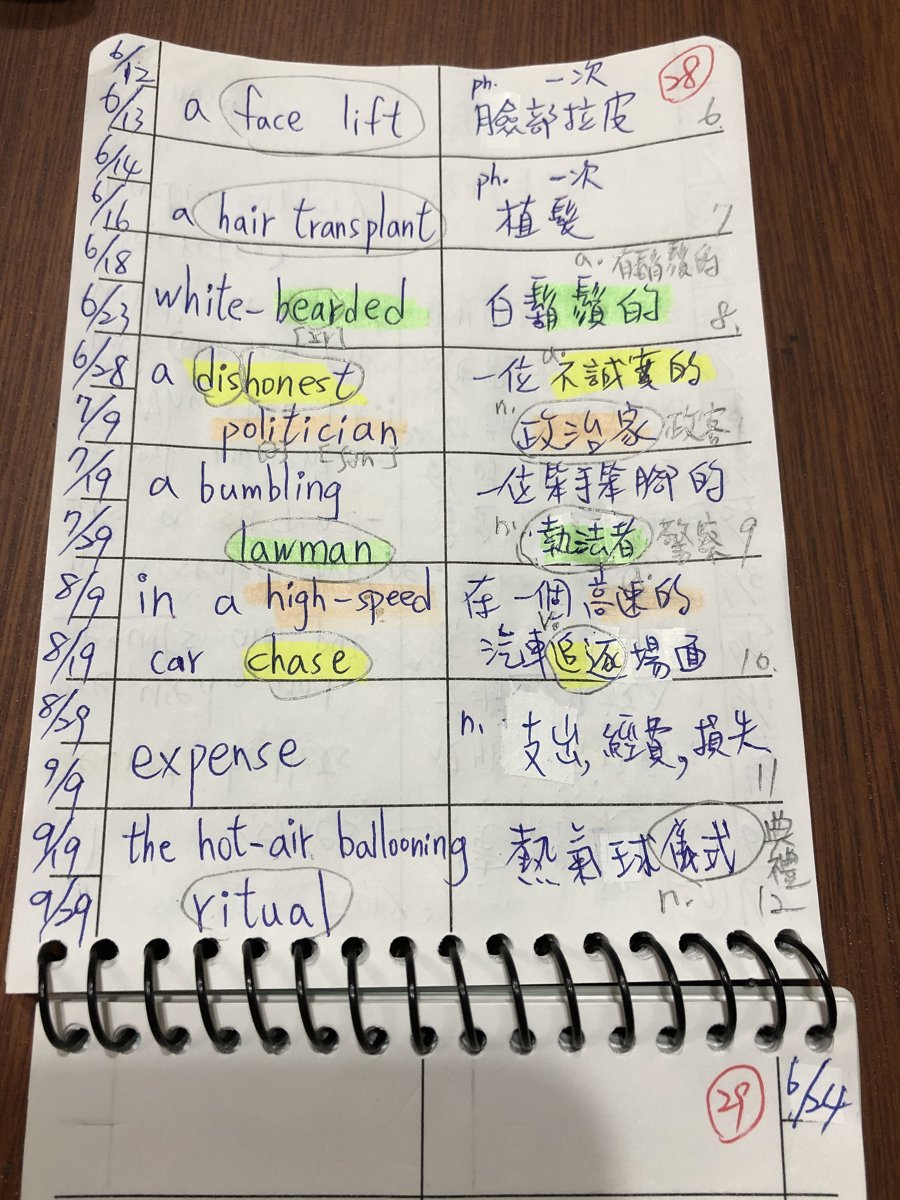 6/12 ph. 一次 28
6/13 a face lift 臉部拉皮 6.
6/14 ph. 一次
6/16 a hair transplant 植髮 7
6/18 a. 有鬍鬚的
6/23 white-bearded 白鬍鬚的 8.
[ɪr]
6/28 a dishonest 一位 a. 不誠實的
7/9 politician n. 政治家 政客
[ə] [ʃən]
7/19 a bumbling 一位笨手笨腳的
7/29 lawman n. 執法者 警察 9
8/9 in a high-speed 在一個 a. 高速的
8/19 car chase 汽車 v. 追逐場面 10.
8/29 n. 支出, 經費, 損失
9/9 expense 11
9/19 the hot-air ballooning 熱氣球儀式 典禮
9/29 ritual n. 12
29 6/24